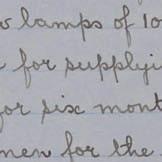 lamps of 10
for supplyi
for six mont
men for the